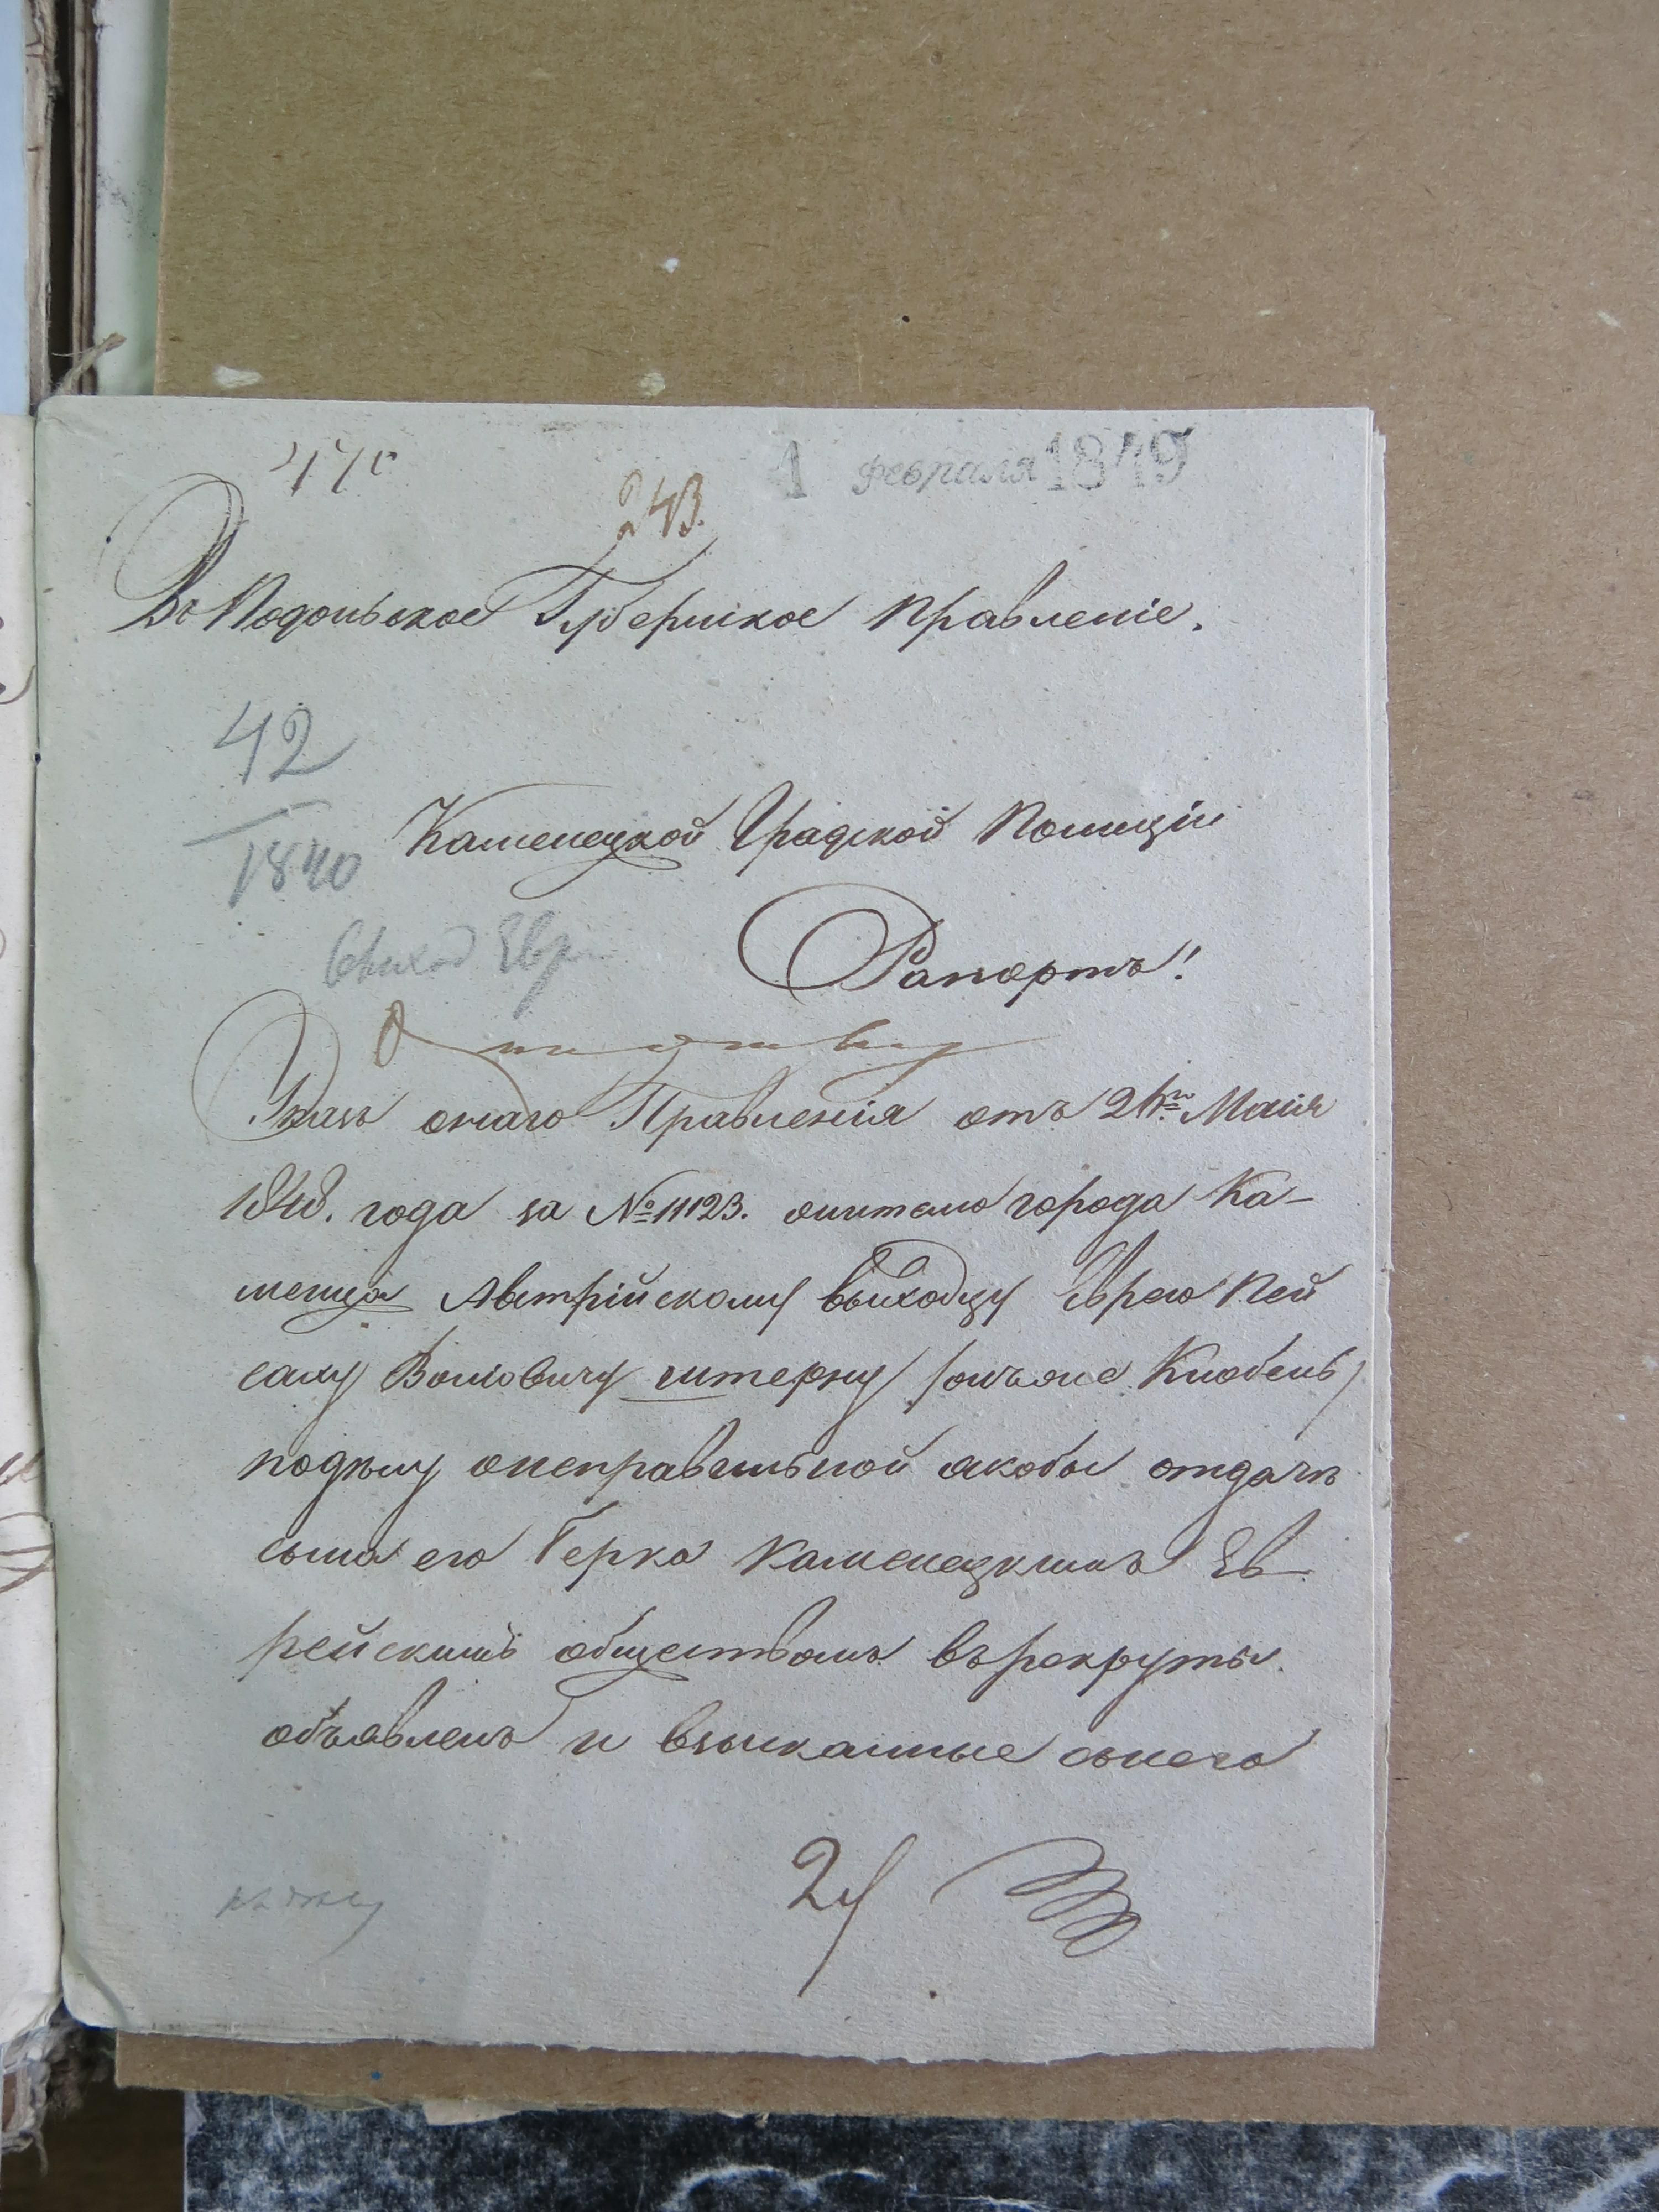 1 февраля 1849
243.
Въ Подольское Губернское Правленіе.
42
1840
Каменецкой Градской Полиціи
Рапортъ!
Указъ онаго Правленія отъ 21го Маія
1848. года за № 11123. жителю города Ка-
менца Австрійскому выходцу Еврею Пей
саху Вольковичу Штерну /онъ же Кнобель/
по дѣлу о неправильной якобы отдачѣ
сына его Герка Каменецкимъ Ев-
рейскимъ обществомъ въ рекруты
объявленъ и взысканные с него